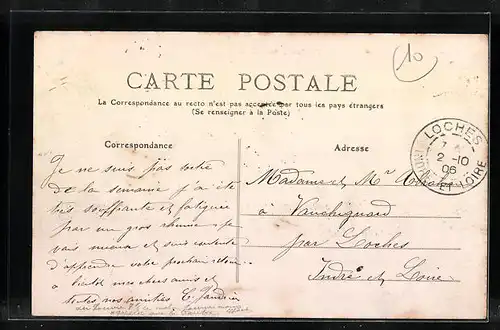 10
CARTE POSTALE
La Correspondance au recto n'est pas acceptée par tous les pays étrangers
(Se renseigner à la Poste)
Correspondance
Adresse
LOCHES
2 -10
06
ET LOIRE
Je ne suis pas sortie
de la semaine j'ai été
très souffrante et fatiguée
par un gros rhume - je
vais mieux et suis contente
d'apprendre votre prochain retour
à bientôt mes chers amis et
toutes nos amitiés
Madame et Mr
à Vauchignard
par Loches
Indre et Loire